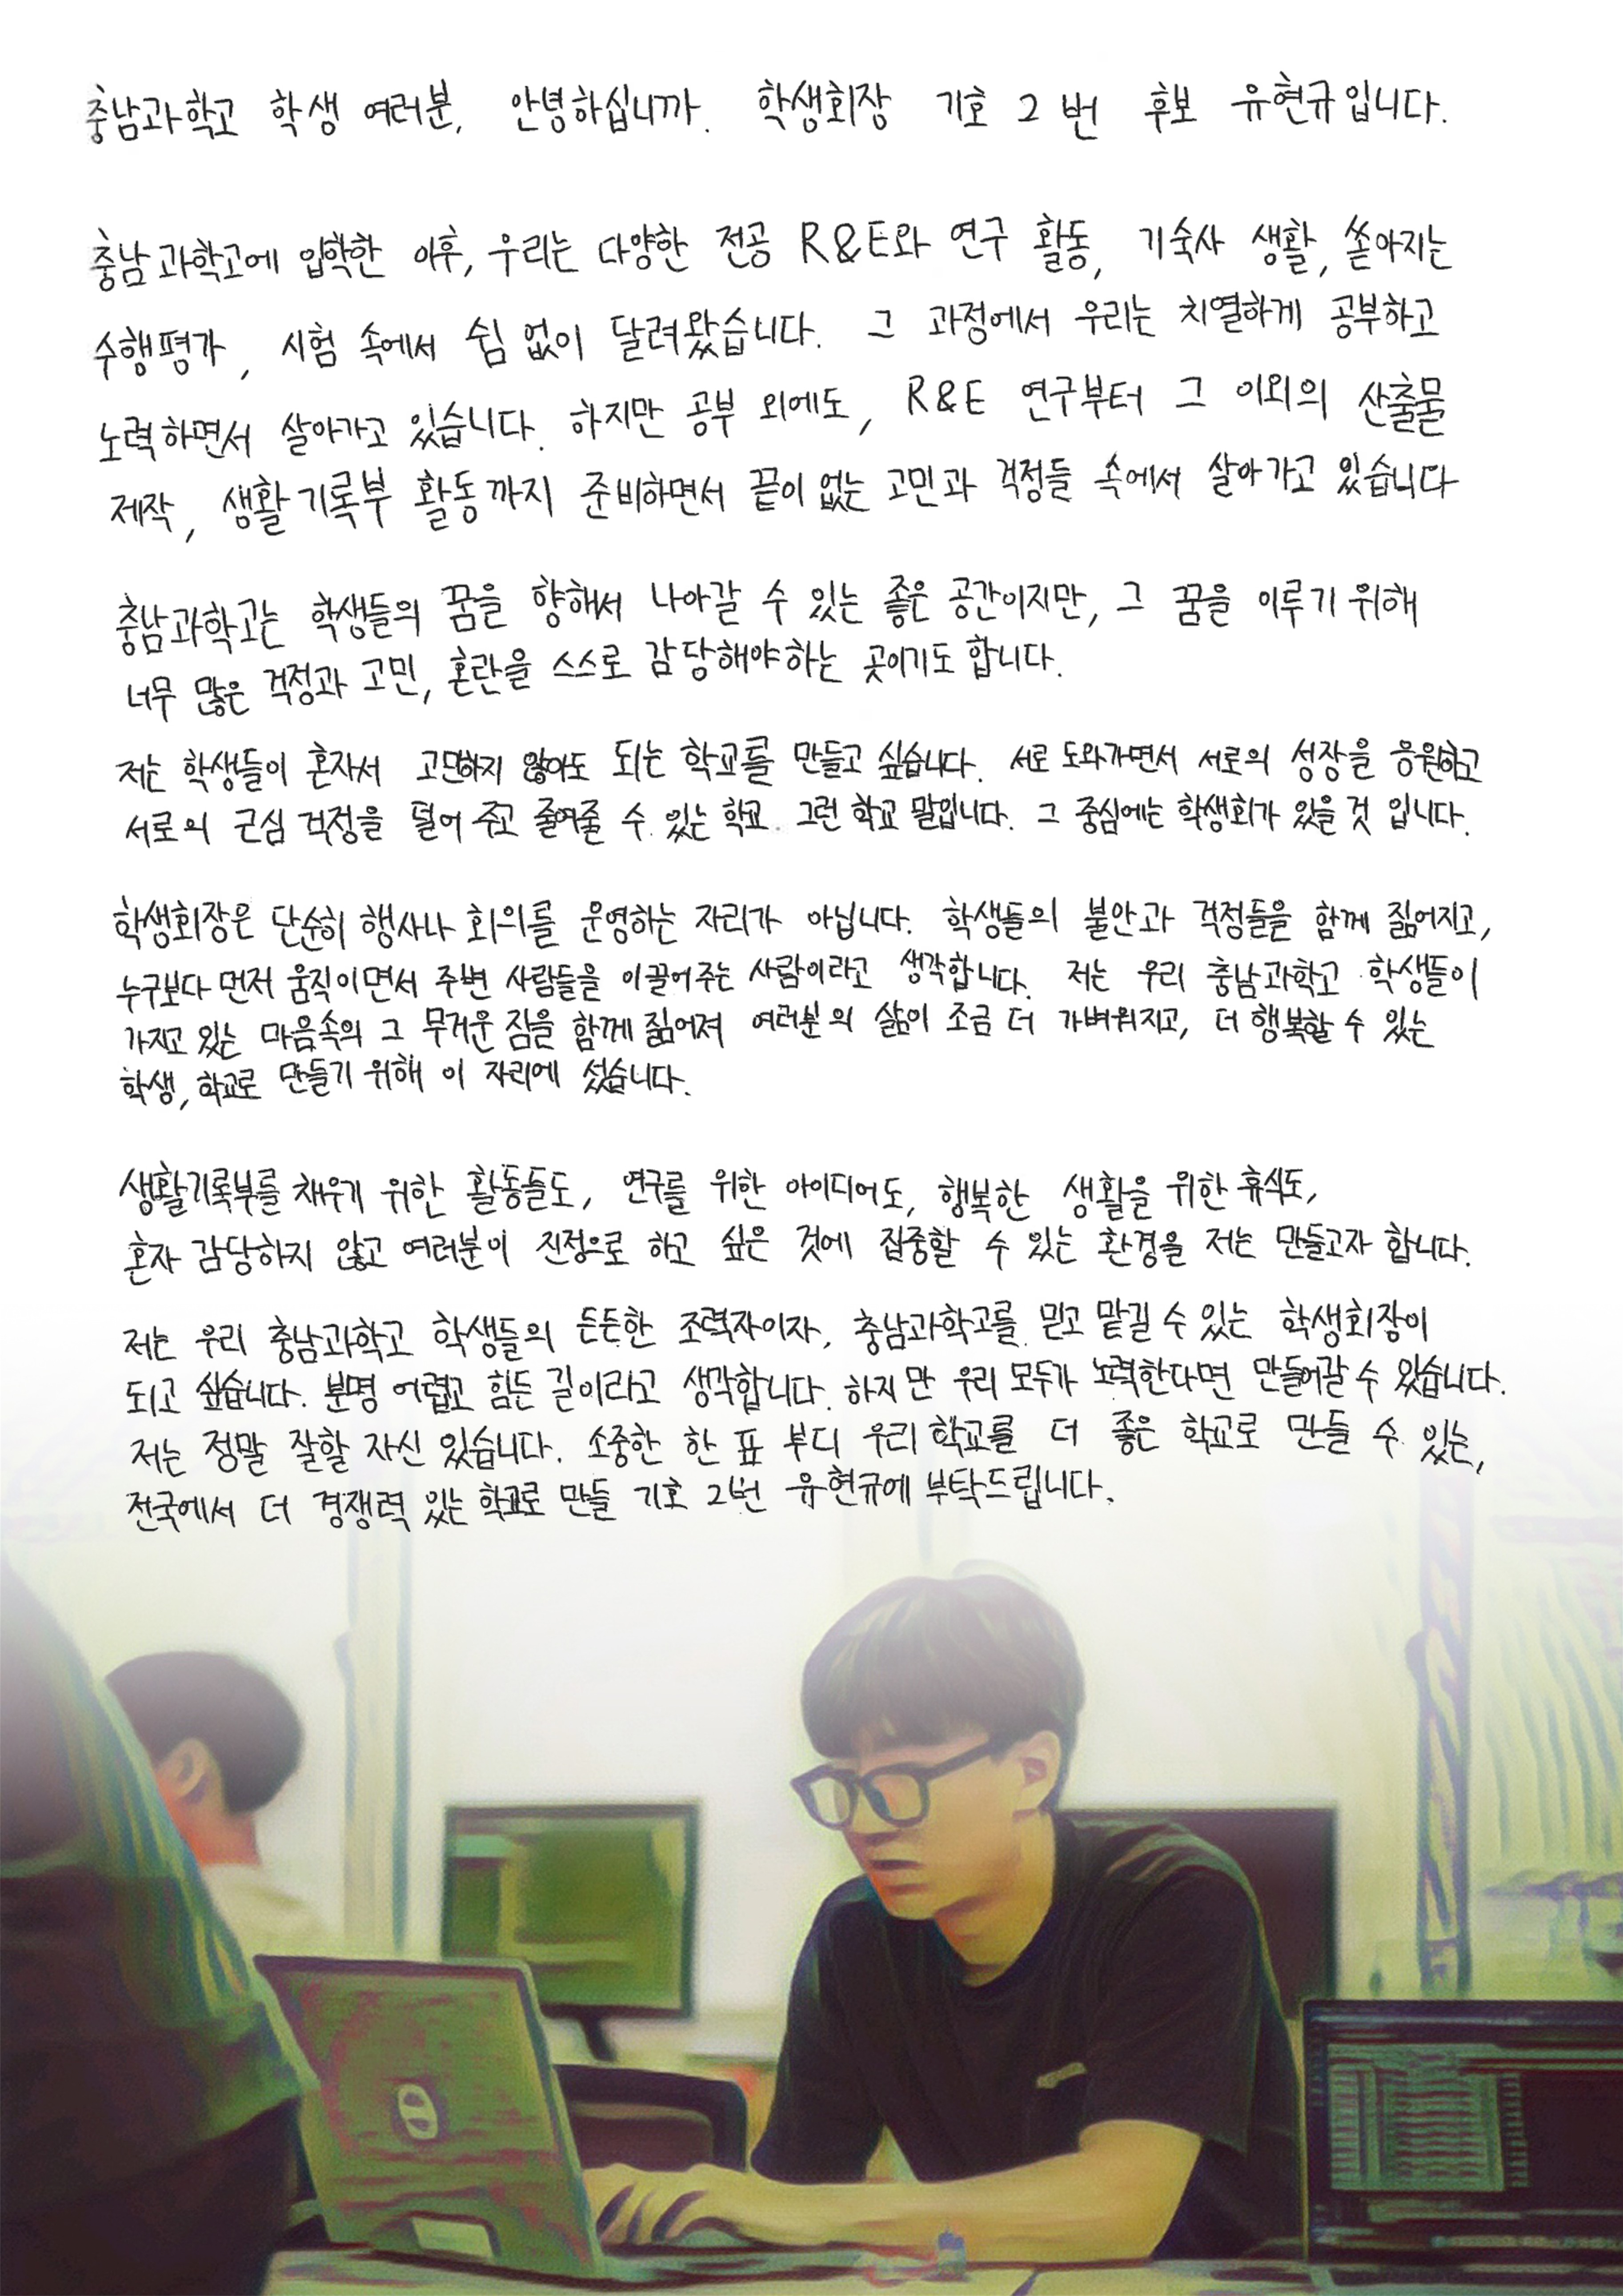 충남과학고 학생 여러분, 안녕하십니까. 학생회장 기호 2번 후보 유현규입니다.
충남과학고에 입학한 이후, 우리는 다양한 전공 R&E와 연구 활동, 기숙사 생활, 쏟아지는
수행평가, 시험 속에서 쉼 없이 달려왔습니다. 그 과정에서 우리는 치열하게 공부하고
노력하면서 살아가고 있습니다. 하지만 공부 외에도, R&E 연구부터 그 이외의 산출물
제작, 생활기록부 활동까지 준비하면서 끝이 없는 고민과 걱정들 속에서 살아가고 있습니다
충남과학고는 학생들의 꿈을 향해서 나아갈 수 있는 좋은 공간이지만, 그 꿈을 이루기 위해
너무 많은 걱정과 고민, 혼란을 스스로 감당해야하는 곳이기도 합니다.
저는 학생들이 혼자서 고민하지 않아도 되는 학교를 만들고 싶습니다. 서로 도와가면서 서로의 성장을 응원하고
서로의 근심 걱정을 덜어 주고 줄여줄 수 있는 학교. 그런 학교 말입니다. 그 중심에는 학생회가 있을 것 입니다.
학생회장은 단순히 행사나 회의를 운영하는 자리가 아닙니다. 학생들의 불안과 걱정들을 함께 짊어지고,
누구보다 먼저 움직이면서 주변 사람들을 이끌어주는 사람이라고 생각합니다. 저는 우리 충남과학고 학생들이
가지고 있는 마음속의 그 무거운 짐을 함께 짊어져 여러분의 삶이 조금 더 가벼워지고, 더 행복할 수 있는
학생, 학교로 만들기 위해 이 자리에 섰습니다.
생활기록부를 채우기 위한 활동들도, 연구를 위한 아이디어도, 행복한 생활을 위한 휴식도,
혼자 감당하지 않고 여러분이 진정으로 하고 싶은 것에 집중할 수 있는 환경을 저는 만들고자 합니다.
저는 우리 충남과학고 학생들의 든든한 조력자이자, 충남과학고를 믿고 맡길 수 있는 학생회장이
되고 싶습니다. 분명 어렵고 힘든 길이라고 생각합니다. 하지만 우리 모두가 노력한다면 만들어갈 수 있습니다.
저는 정말 잘할 자신 있습니다. 소중한 한 표 부디 우리 학교를 더 좋은 학교로 만들 수 있는,
전국에서 더 경쟁력 있는 학교로 만들 기호 2번 유현규에 부탁드립니다.